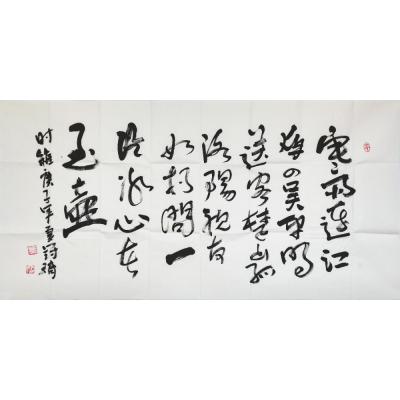 寒雨連江
夜入吴平明
送客楚山孤
洛陽親友
如相問一
片冰心在
玉壺
时維庚子年